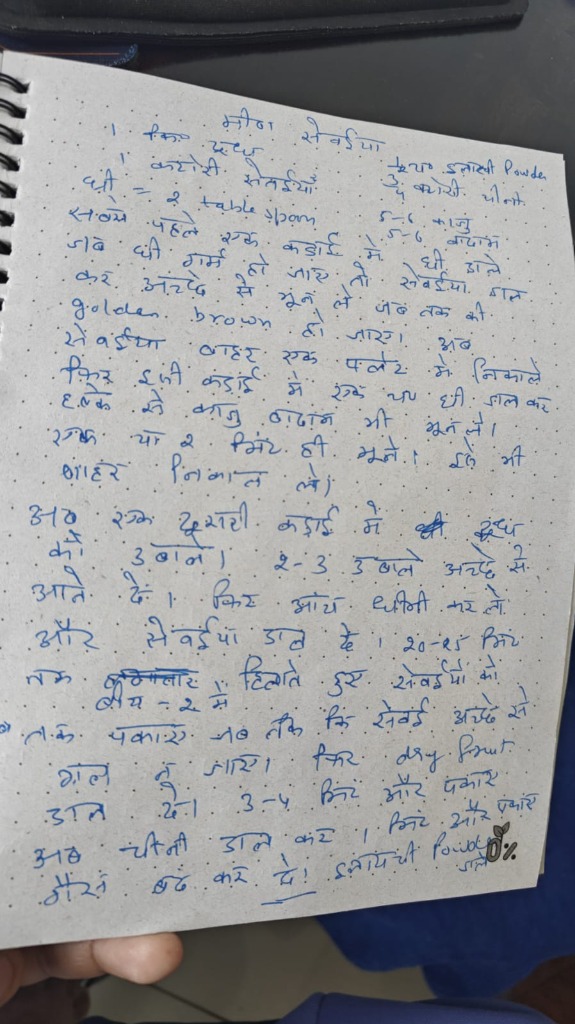 मीठा सेवईया
1 किग्रा दूध
1 कटोरी सेवईयां
घी = 2 table spoon
इलायची Powder
3/4 कटोरी चीनी
5-6 काजु
5-6 बादाम
सबसे पहले एक कड़ाई में घी डाले
जब घी गर्म हो जाए तो सेवईया डाल
कर अच्छे से भून ले जब तक की
golden brown हो जाए। अब
सेवईया बाहर एक प्लेट में निकाले
फिर इसी कड़ाई में एक चम घी डाल कर
हल्के से काजु बादाम भी भून ले।
एक या 2 मिंट ही भूने। इसे भी
बाहर निकाल ले।
अब एक दूसरी कड़ाई में दूध
को उबाले। 2-3 उबाले अच्छे से
आने दें। फिर आंच धीमी कर लो
और सेवईया डाल दे। 20-25 मिंट
तक बीच-2 में हिलाते हुए सेवईयों को
तक पकाए जब तक कि सेवई अच्छे से
गल न जाए। फिर dry fruit
डाल दे। 3-4 मिंट और पकाए
अब चीनी डाल कर 1 मिंट और पकाए
गैस बंद कर दे। इलायची Powder
डाले